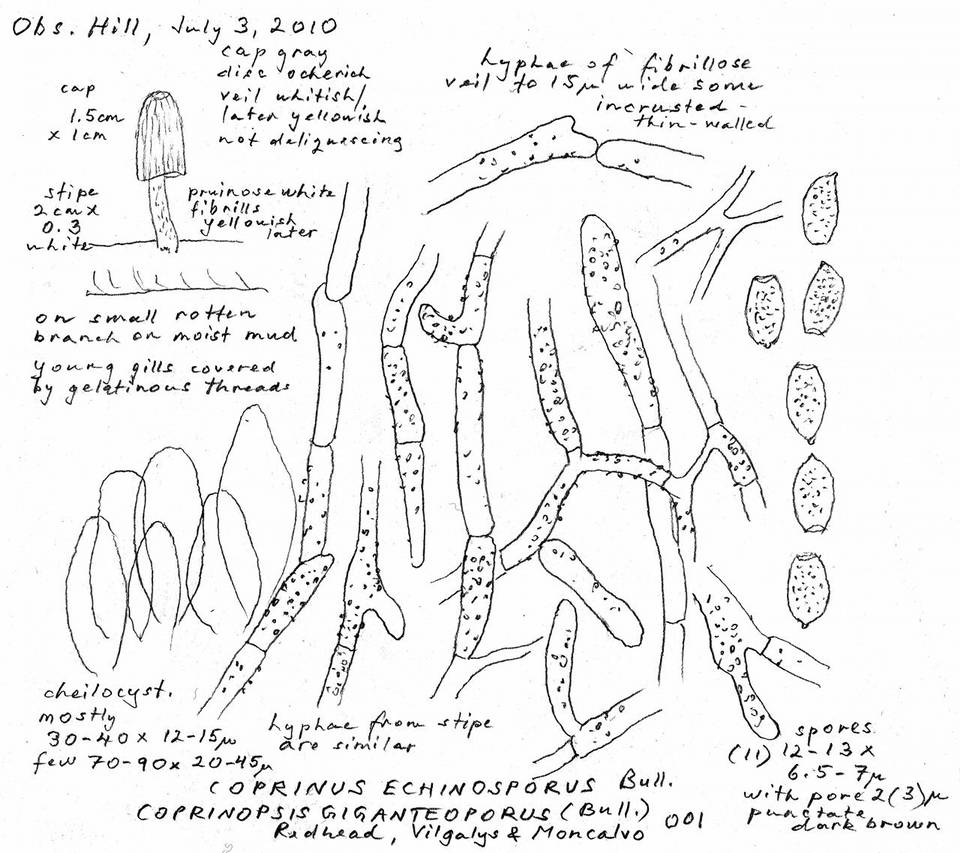 Obs. Hill, July 3, 2010
cap gray
disc ocherich
veil whitish/,
later yellowish
not deliquescing
cap
1.5cm
x 1cm
stipe
2cm x
0.3
white
pruinose white
fibrills
yellowish
later
on small rotten
branch on moist mud
young gills covered
by gelatinous threads
hyphae of fibrillose
veil to 15µ wide some
incrusted -
thin-walled
cheilocyst.
mostly
30-40 x 12-15µ
few 70-90 x 20-45µ
hyphae from stipe
are similar
spores
(11) 12-13 x
6.5-7µ
with pore 2(3)µ
punctate
dark brown
COPRINUS ECHINOSPORUS Bull.
COPRINOPSIS GIGANTEOPORUS (Bull.)
Redhead, Vilgalys & Moncalvo 001